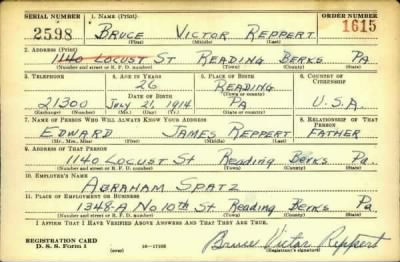 SERIAL NUMBER
1. NAME (Print)
ORDER NUMBER
2598
BRUCE VICTOR REPPERT
1615
(First) (Middle) (Last)
2. ADDRESS (Print)
1140 LOCUST ST READING BERKS PA
(Number and street or R. F. D. number) (Town) (County) (State)
3. TELEPHONE
4. AGE IN YEARS
5. PLACE OF BIRTH
6. COUNTRY OF CITIZENSHIP
26
READING
DATE OF BIRTH
(Town or county)
21300
JULY 21, 1914
PA
U.S.A.
(Exchange) (Number)
(Mo.) (Day) (Yr.)
(State or country)
7. NAME OF PERSON WHO WILL ALWAYS KNOW YOUR ADDRESS
8. RELATIONSHIP OF THAT PERSON
EDWARD JAMES REPPERT FATHER
(Mr., Mrs., Miss) (First) (Middle) (Last)
9. ADDRESS OF THAT PERSON
1140 LOCUST St Reading Berks Pa.
(Number and street or R. F. D. number) (Town) (County) (State)
10. EMPLOYER'S NAME
ABRAHAM SPATZ
11. PLACE OF EMPLOYMENT OR BUSINESS
1348-A No 10th St Reading Berks Pa.
(Number and street or R. F. D. number) (Town) (County) (State)
I AFFIRM THAT I HAVE VERIFIED ABOVE ANSWERS AND THAT THEY ARE TRUE.
REGISTRATION CARD
D. S. S. Form 1
(over)
16—17105
Bruce Victor Reppert
(Registrant's signature)